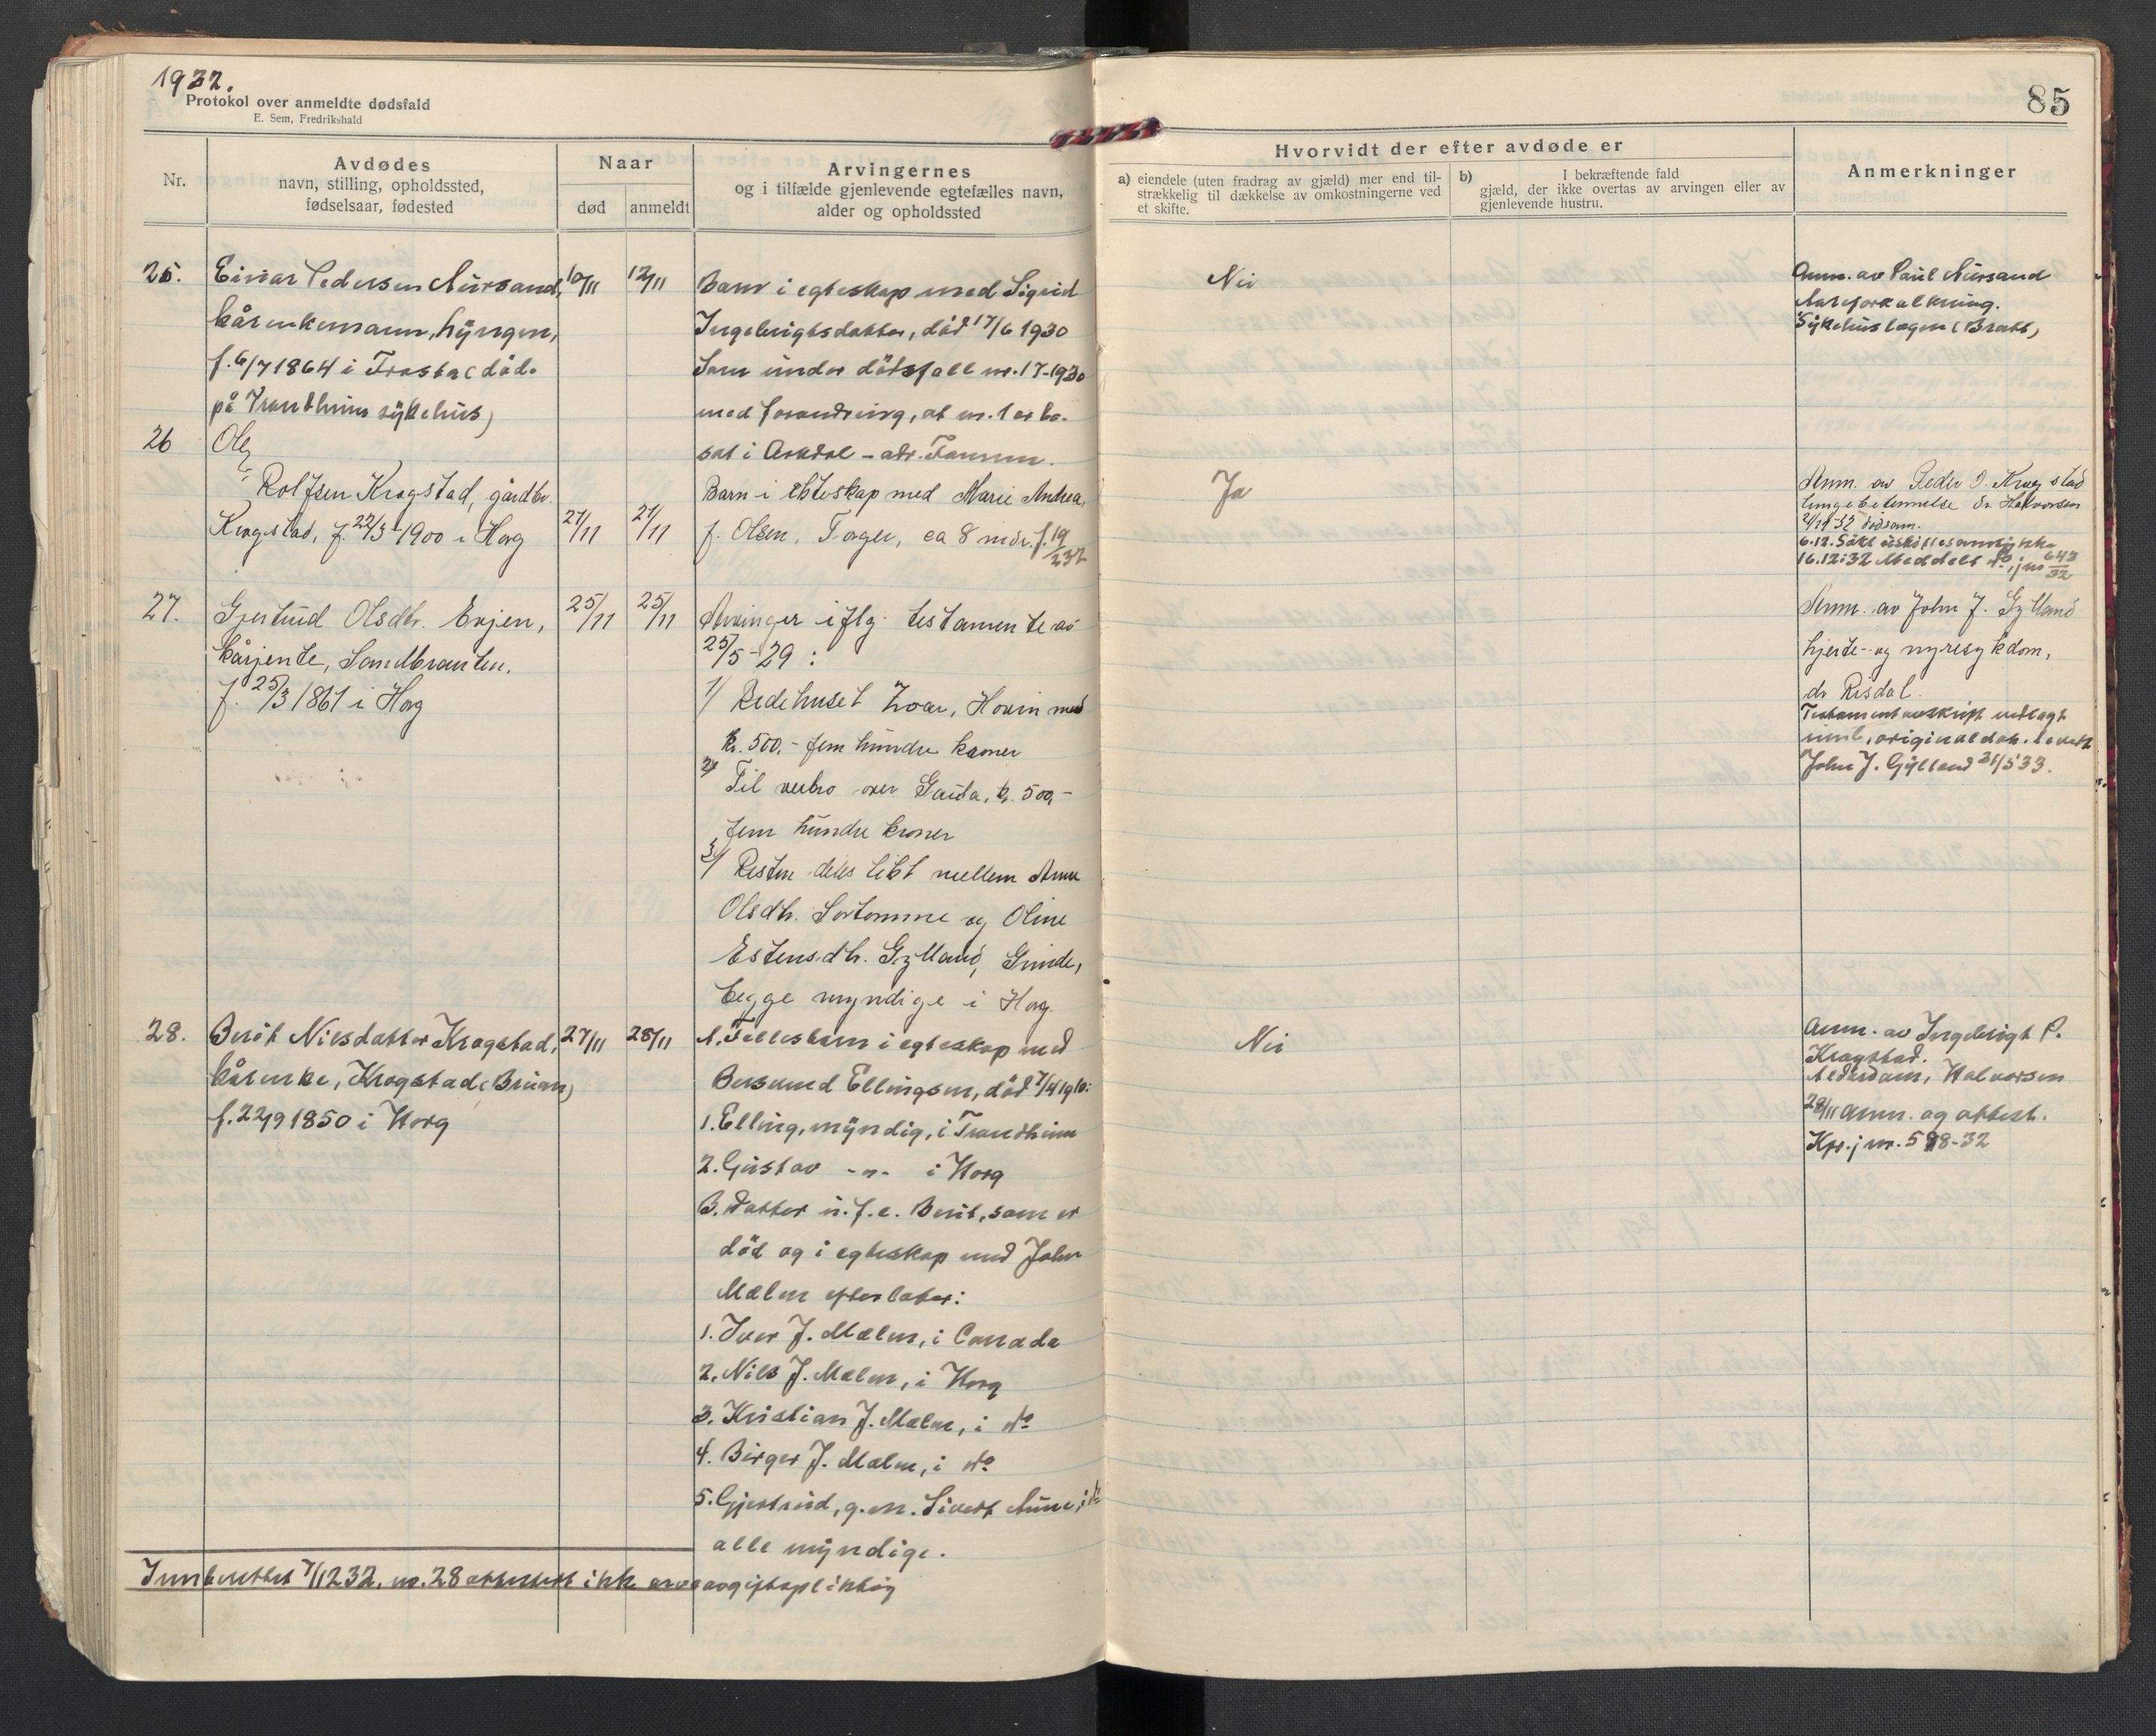 1932.
Protokol over anmeldte dødsfald
E. Sem, Fredrikshald
85
Nr.
Avdødes
navn, stilling, opholdssted,
fødselsaar, fødested
Naar
død
anmeldt
Arvingernes
og i tilfælde gjenlevende egtefælles navn,
alder og opholdssted
Hvorvidt der efter avdøde er
a) eiendele (uten fradrag av gjæld) mer end til-
strækkelig til dækkelse av omkostningerne ved
et skifte.
b) I bekræftende fald
gjæld, der ikke overtas av arvingen eller av
gjenlevende hustru.
Anmerkninger
25.
Einar Pedersen Aursand,
kårenkemann, Lyngen,
f. 6/7 1864 i Frosta (död
på Trondheims sykehus)
10/11
12/11
Barn i egteskap med Sigrid
Ingebrigtsdatter, död 17/6 1930
Som under dödsfall nr. 17-1930
med forandring, at nr. 1 er bo-
sat i Arkdal - adr. Fannrem.
Nei
Anm. av Paul Aursand
Åreforkalkning.
Sykehuslægen (Bratt)
26
Ole
Rolfsen Krogstad, gårdbr.
Krogstad, f. 22/3-1900 i Horg
27/11
27/11
Barn i ekteskap med Marie Andrea,
f. Olsen, Torger, ca 8 mdr. f. 19/2 32
Ja
Anm. av Peder O. Krogstad
lungebetennelse dr. Halvorsen
2/12-32 dödsanm.
6.12. Sökt uskiftesamtykke
16.12.32 Meddelt do, jnr 643/32
27.
Gjertrud Olsdtr. Evjen,
kårjente, Sandbrauten.
f. 25/3 1861 i Horg
25/11
25/11
Arvinger iflg. testamente av
25/5-29:
1/ Bedehuset Zoar, Hovin med
kr. 500,- fem hundre kroner
2/ Til veibro over Gaula, kr. 500,-
fem hundre kroner
3/ Resten deles likt mellem Anne
Olsdtr. Sortomme og Oline
Estensdtr. Gylland, Grinde,
begge myndige i Horg.
Anm. av John J. Gylland
hjerte- og nyresykdom,
dr Risdal.
Testamentavskrift vedlagt
innb., originaldok. levert
John J. Gylland 31/5 33.
28.
Berit Nilsdatter Krogstad,
kårenke, Krogstad (Bruan)
f. 22/9 1850 i Horg
27/11
28/11
A. Fellesbarn i egteskap med
Bersvend Ellingsen, död 7/4 1910:
1. Elling, myndig, i Trondheim
2. Gustav -"- i Horg
B. Datter u.f.e. Berit, som er
död og i egteskap med John
Malm efterlater:
1. Iver J. Malm, i Canada
2. Nils J. Malm, i Horg
3. Kristian J. Malm, i do
4. Birger J. Malm, i do
5. Gjertrud, g.m. Sivert Aune, i do
alle myndige.
Nei
Anm. av Ingebrigt P.
Krogstad.
Alderdom, Halvorsen
28/11 anm. og attest.
Kps. jnr. 598-32
Innberettet 7/12 32, nr. 28 attestert ikke arveavgiftspliktig